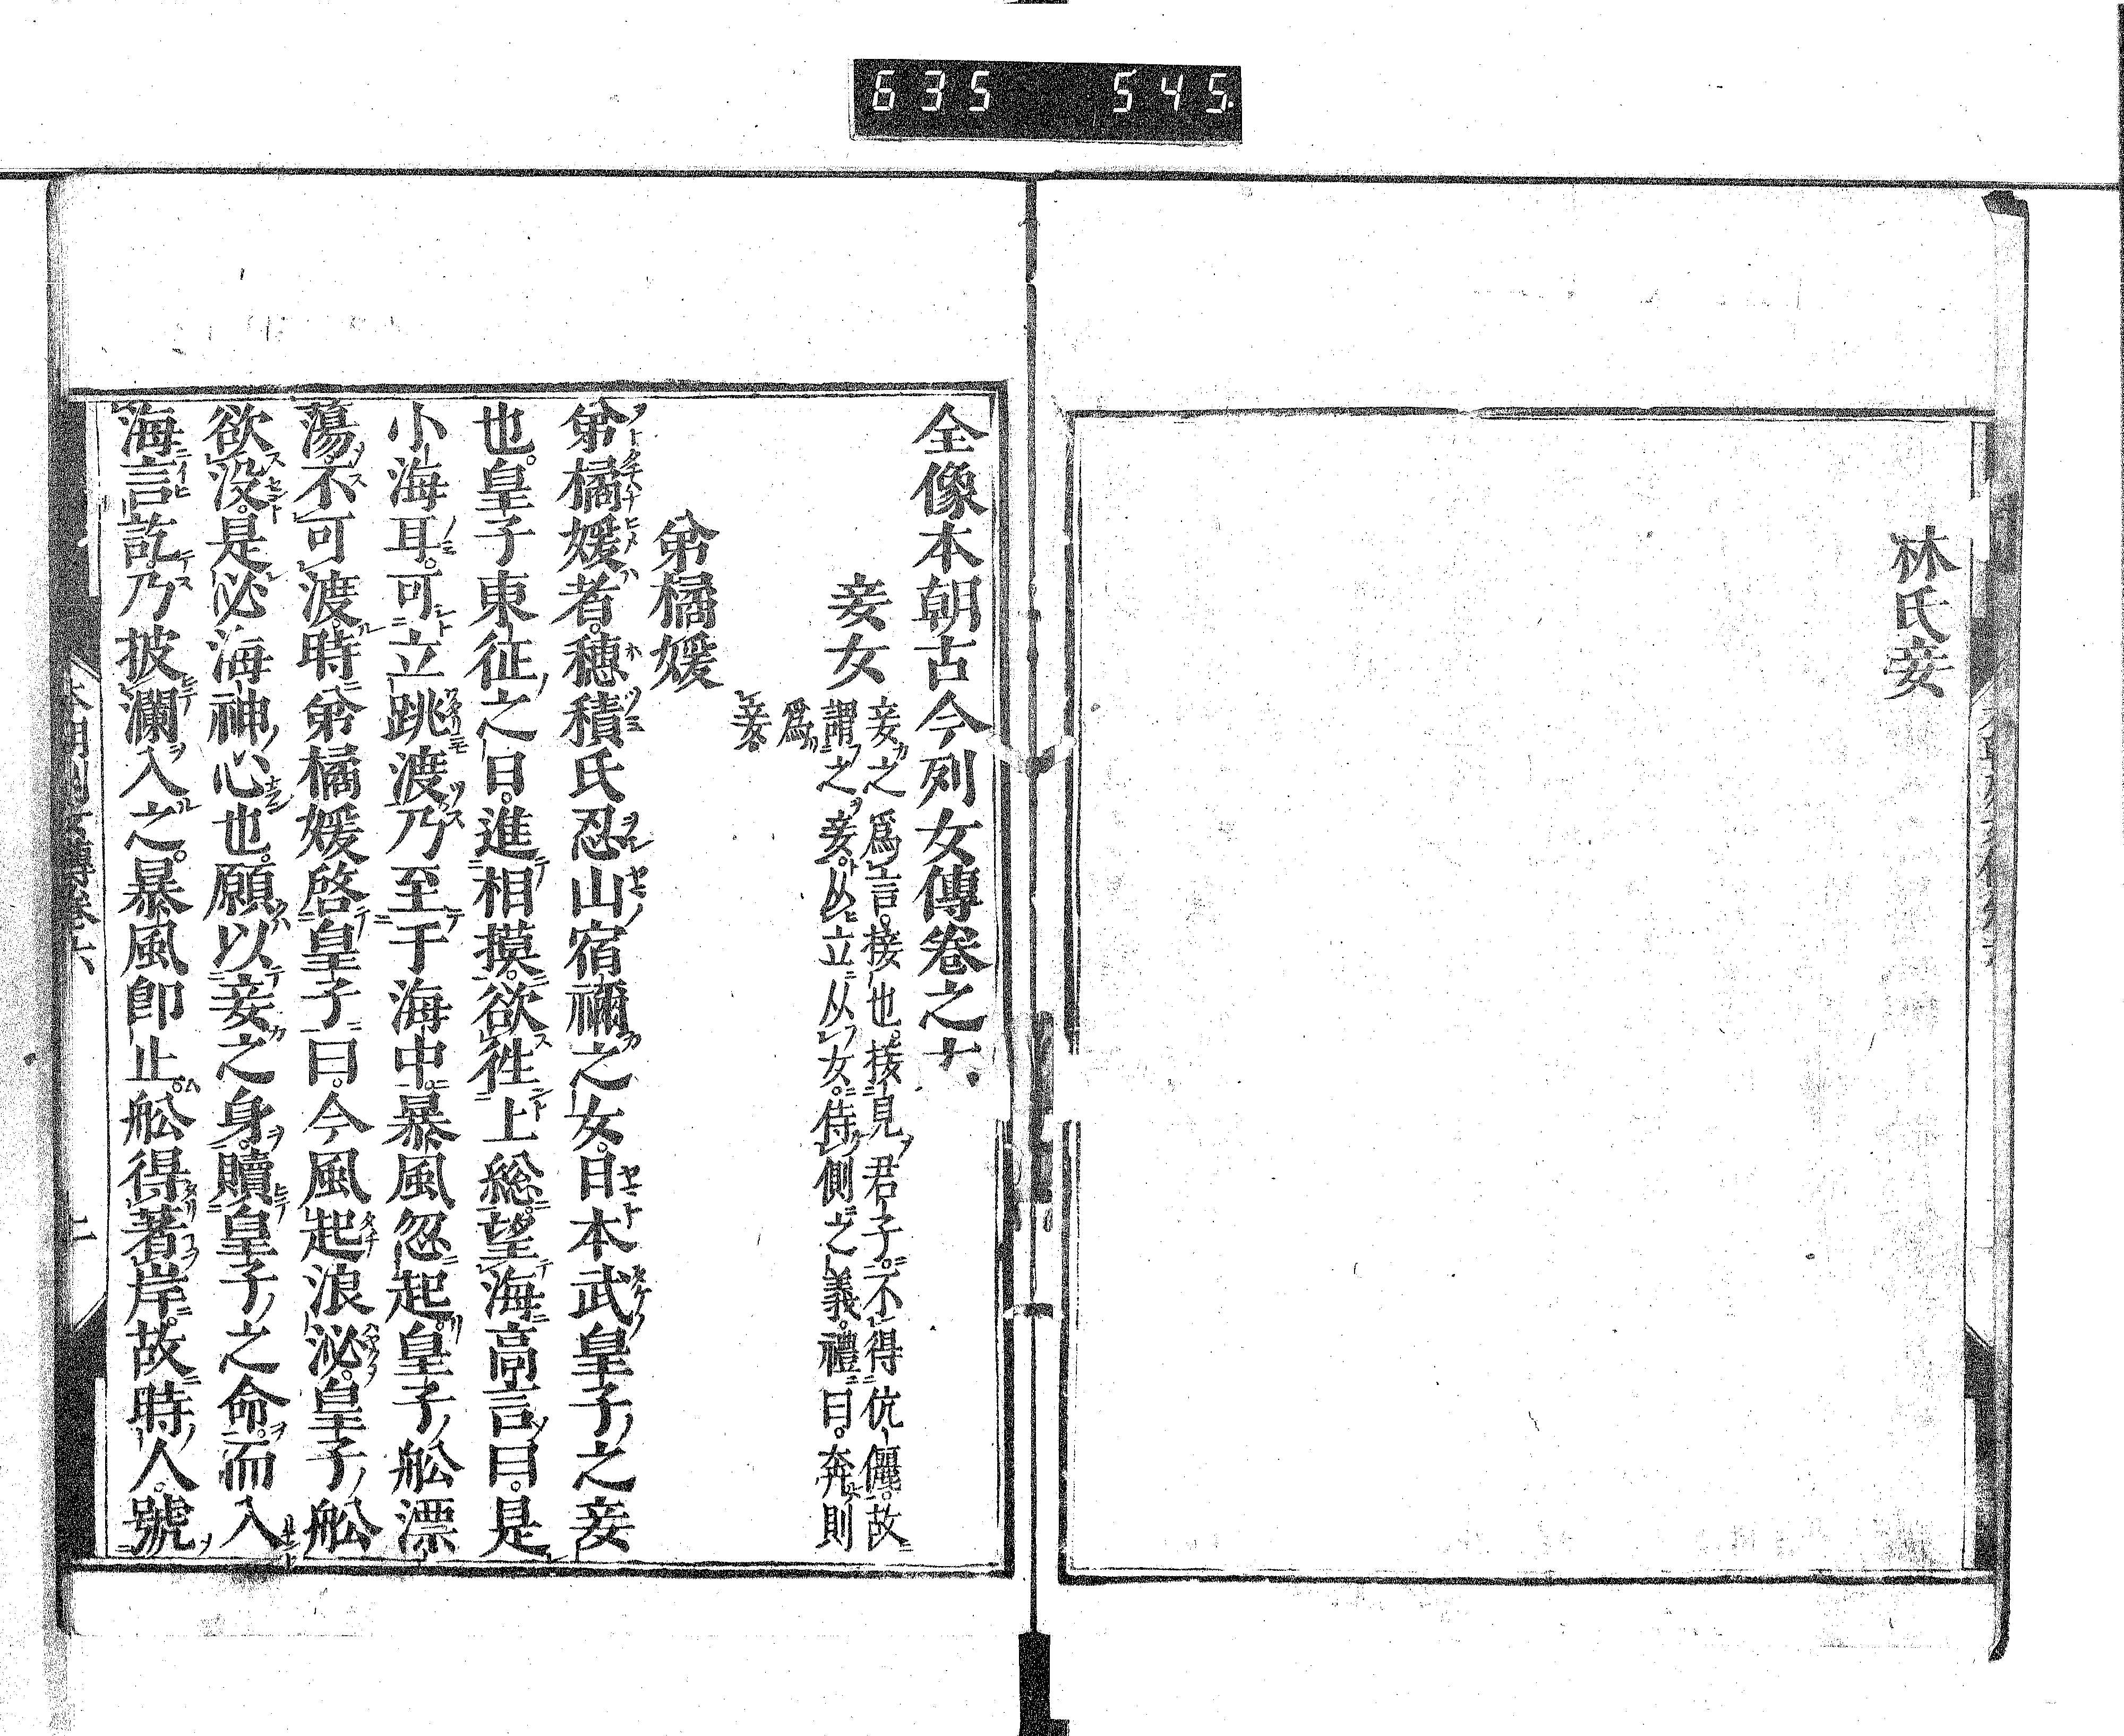 635 545
林氏妾
全像本朝古今列女傳卷之六
妾女
妾之爲言。接也。接見君子。不得伉儷。故
謂之妾。从立从女。侍側之義。禮曰。奔則
爲
妾。
弟橘媛
弟橘媛者。穗積氏忍山宿禰之女。日本武皇子之妾
也。皇子東征之日。進相摸。欲徃上総。望海高言曰。是
小海耳。可立跳渡乃至于海中。暴風忽起。皇子舩漂
蕩。不可渡。時弟橘媛啓皇子曰。今風起浪泌。皇子舩
欲没。是必海神心也。願以妾之身。贖皇子之命。而入
海言訖。乃披瀾入之。暴風即止。舩得著岸。故時人。號
本朝列女傳卷六